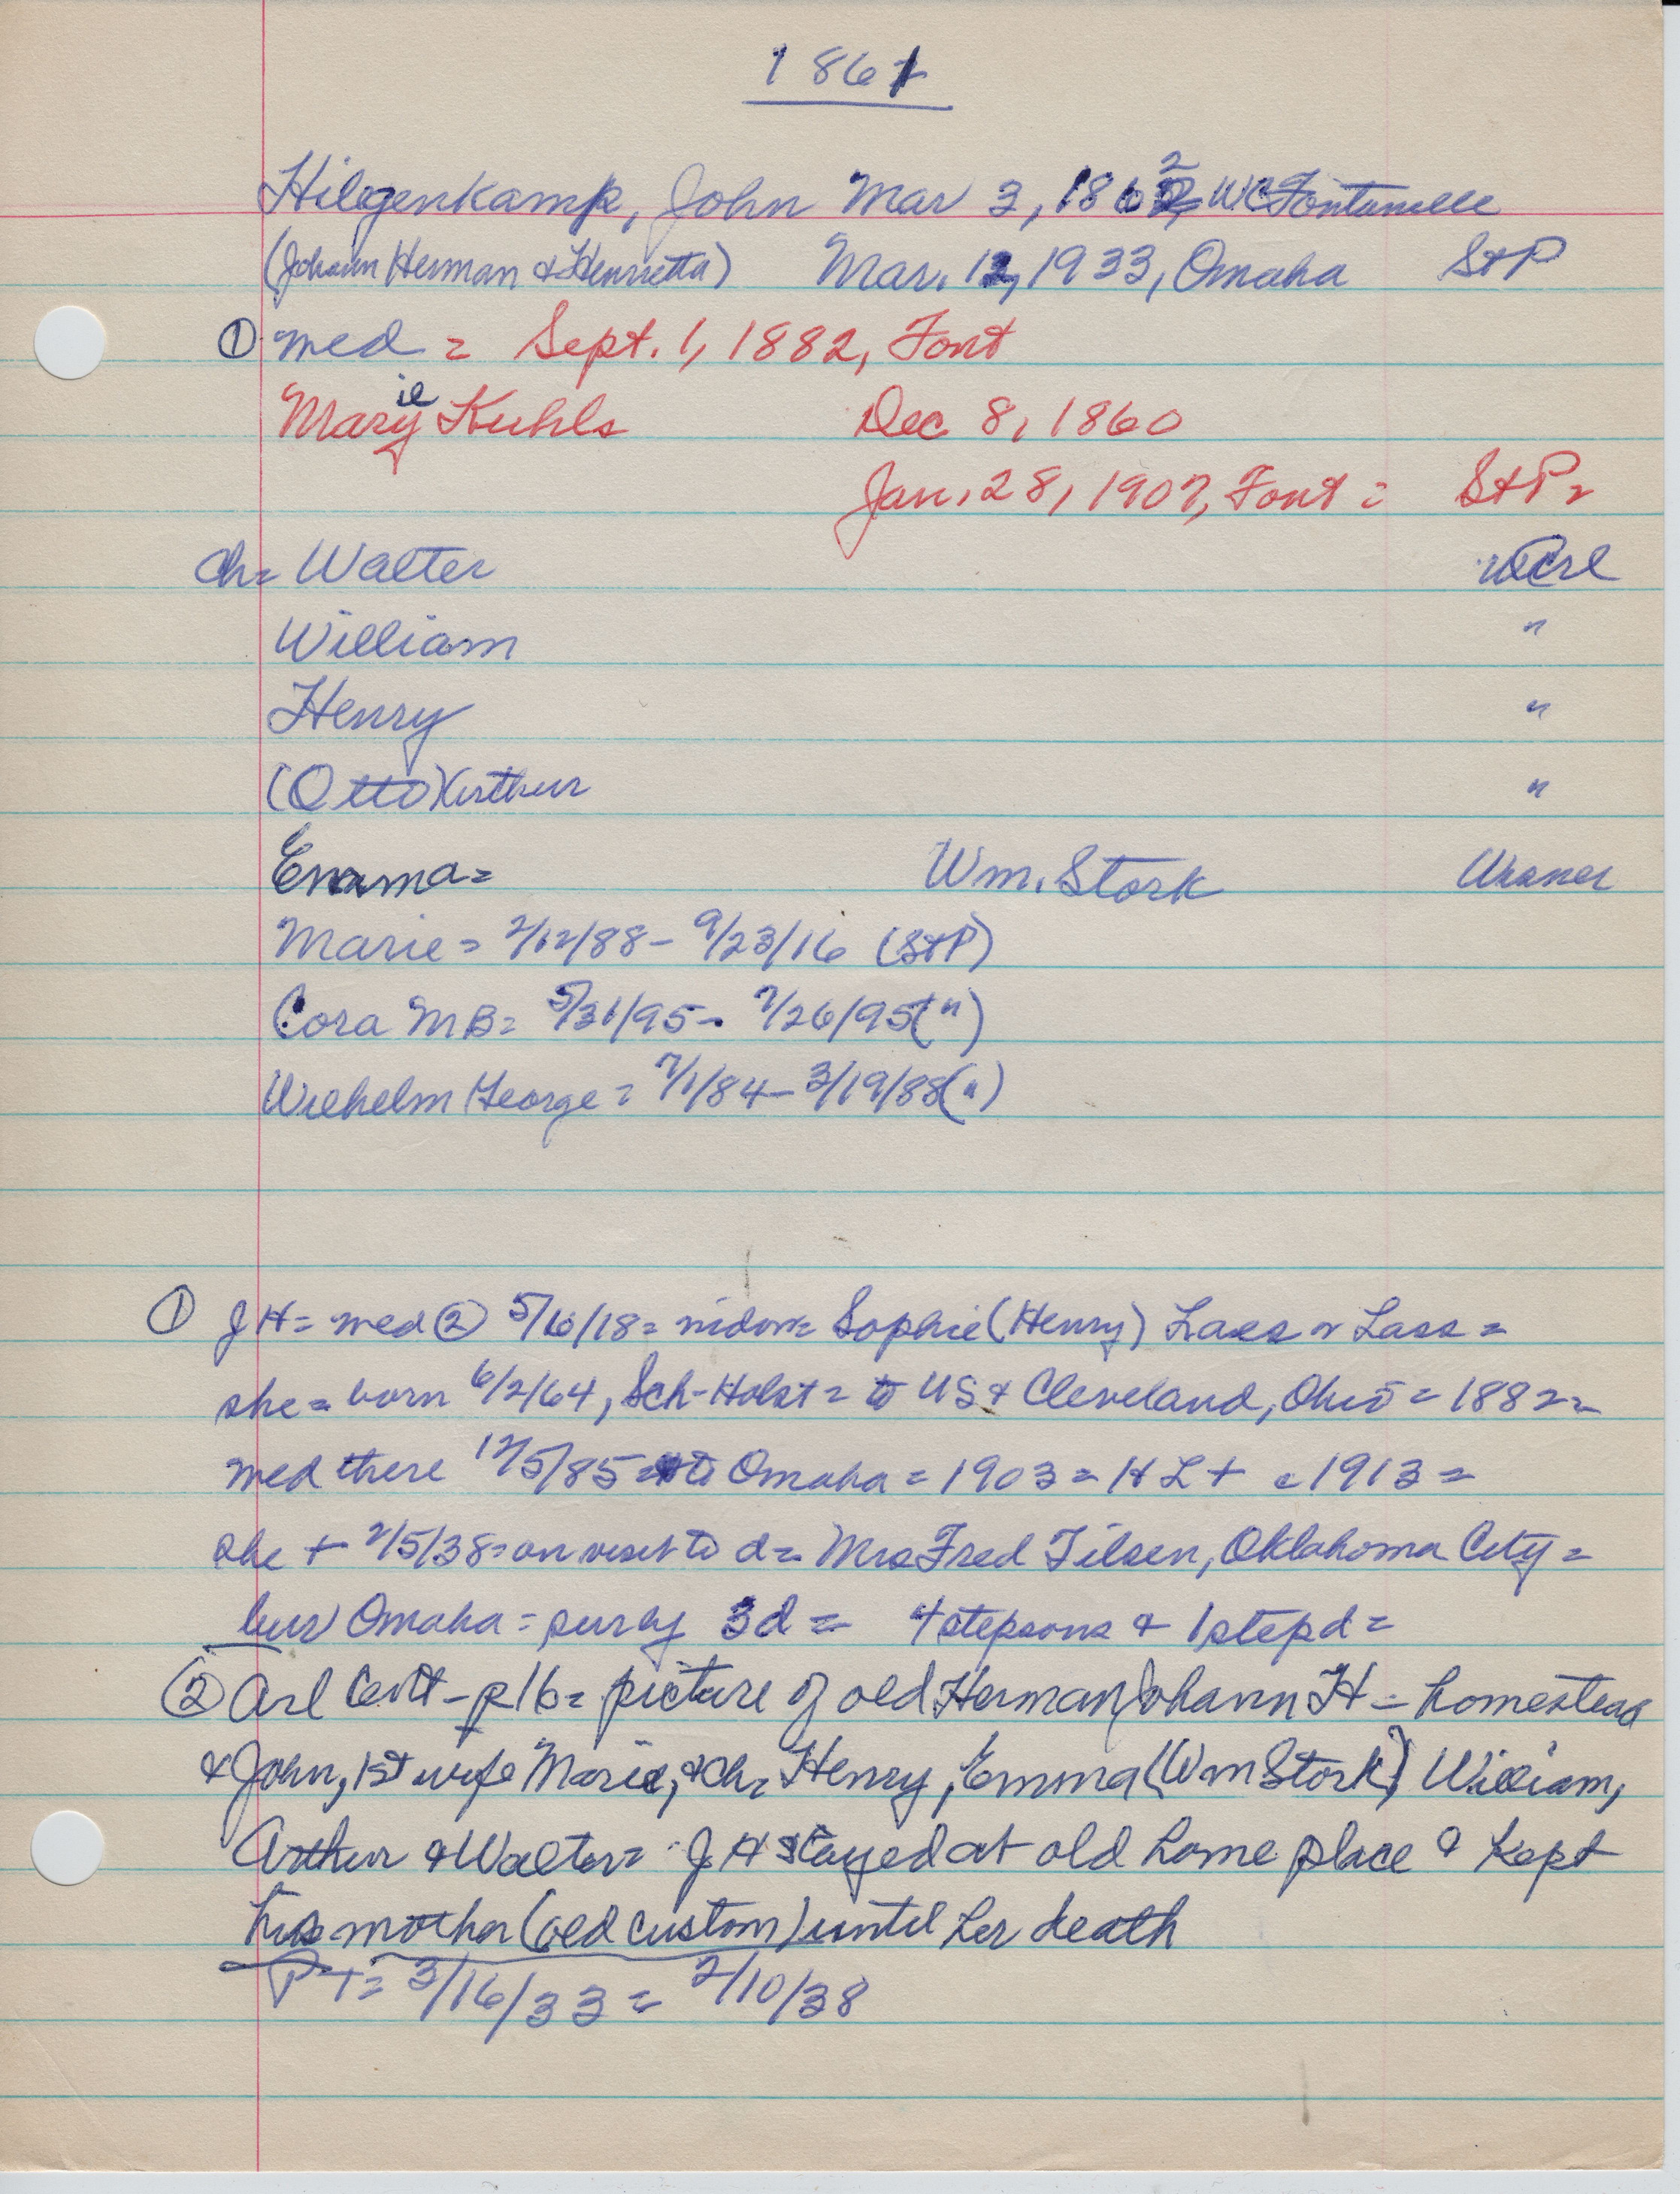 1861
Hilgenkamp, John Mar 3, 1862, WC Fontanelle
(Johann Herman & Henrietta) Mar. 12, 1933, Omaha StP
① med = Sept. 1, 1882, Font
Marie Kuhls Dec 8, 1860
Jan. 28, 1907, Font = StP=
ch= Walter
William "
Henry "
(Otto) Arthur "
Emma= Wm. Stork
Marie = 2/12/88 - 9/23/16 (StP)
Cora MB= 5/31/95 - 7/26/95 (")
Wilhelm George = 7/1/84 - 3/19/88 (")
① JH = med ② 5/16/18 = widow= Sophie (Henry) Laes or Lass =
she = born 6/2/64, Sch-Holst = to US & Cleveland, Ohio = 1882=
med there 12/5/85 = to Omaha = 1903 = HL + c 1913 =
she + 2/5/38 = on visit to d = Mrs Fred Tilsen, Oklahoma City =
bur Omaha = surv by 3d = 4 stepsons & 1 stepd =
② Arl Cent - p16 = picture of old Herman Johann H = homestead
& John, 1st wife Marie, & ch= Henry, Emma (Wm Stork) William,
Arthur & Walter = JH stayed at old home place & kept
his mother (old custom) until her death
PT= 3/16/33 = 2/10/38